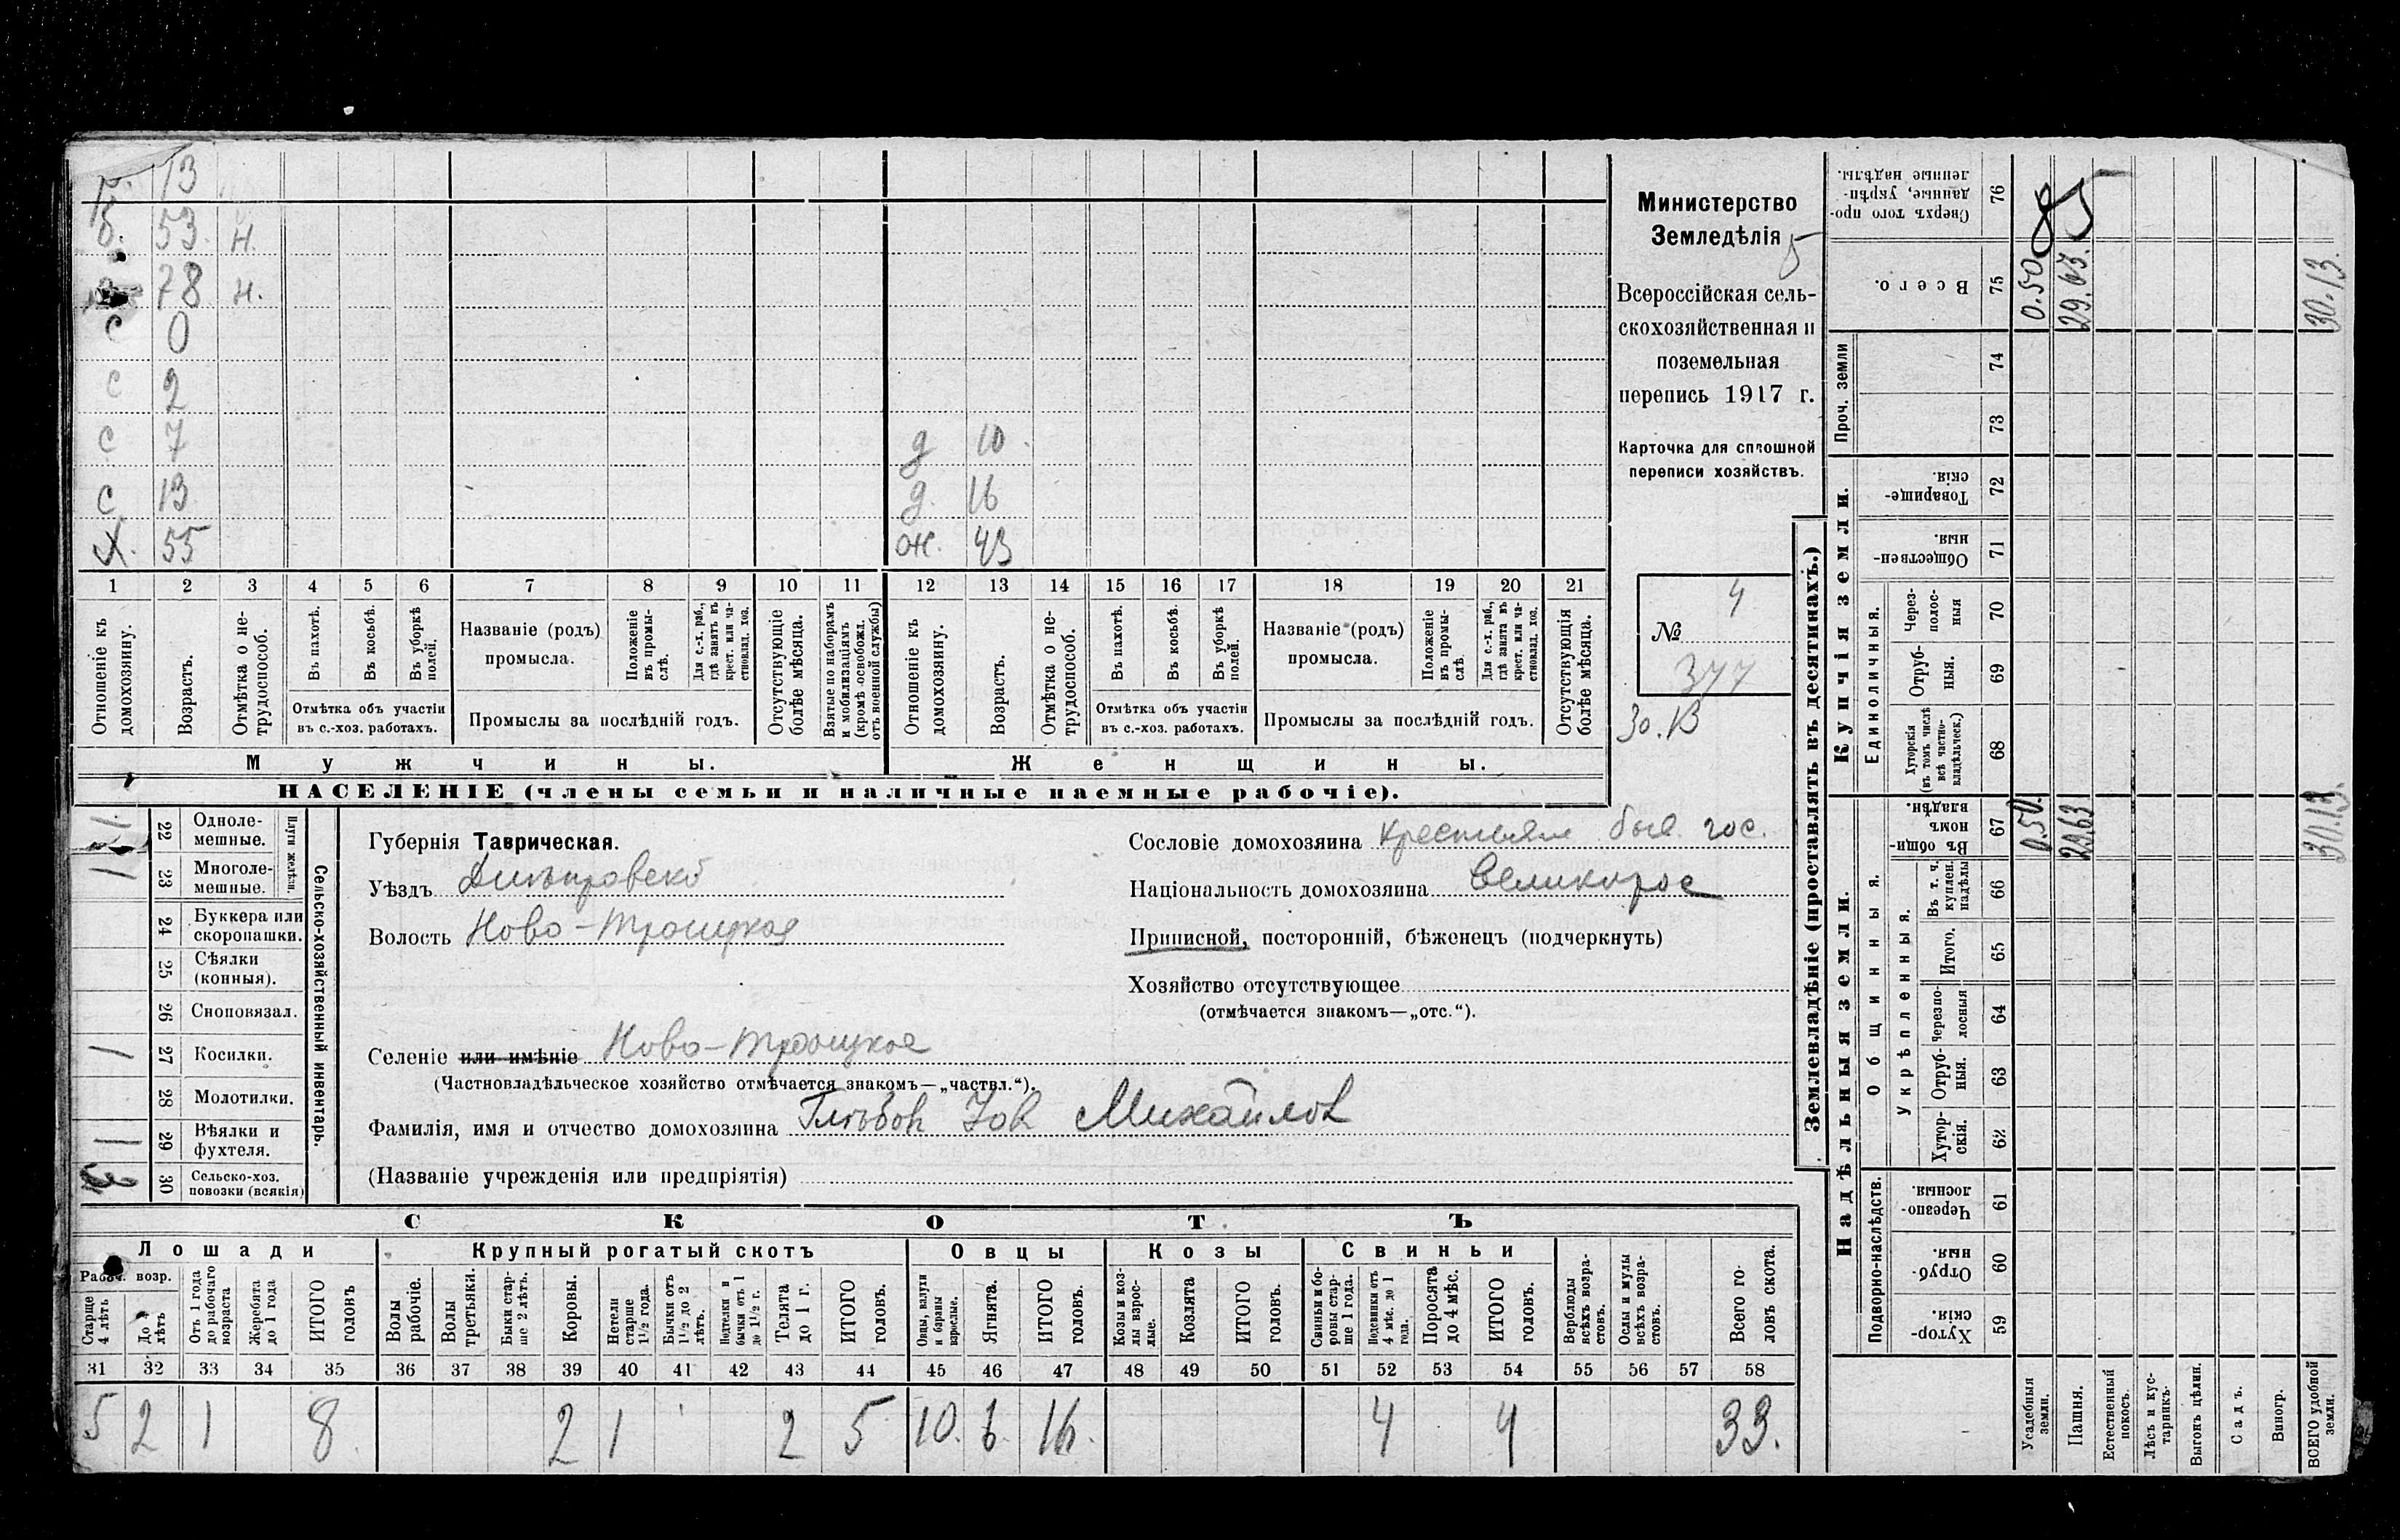 р. 13
б. 53. н.
78 н.
с 0
с 2
с 7 д 10
с 13 д. 16
х. 55 ж. 43
1 2 3 4 5 6 7 8 9 10 11 12 13 14 15 16 17 18 19 20 21
Отношеніе къ домохозяину.
Возрастъ.
Отмѣтка о не-трудоспособ.
Въ пахотѣ.
Въ косьбѣ.
Въ уборкѣ полей.
Отмѣтка объ участіи
въ с.-хоз. работахъ.
Названіе (родъ)
промысла.
Положеніе въ промы-слѣ.
Для с.-х. раб., гдѣ занятъ въ крест. или ча-стновлад. хоз.
Промыслы за послѣдній годъ.
Отсутствующіе болѣе мѣсяца.
Взятые по наборамъ и мобилизаціямъ (кромѣ освобожд. отъ военной службы)
Отношеніе къ домохозяину.
Возрастъ.
Отмѣтка о не-трудоспособ.
Въ пахотѣ.
Въ косьбѣ.
Въ уборкѣ полей.
Отмѣтка объ участіи
въ с.-хоз. работахъ.
Названіе (родъ)
промысла.
Положеніе въ промы-слѣ.
Для с.-х. раб., гдѣ занята въ крест. или ча-стновлад. хоз.
Промыслы за послѣдній годъ.
Отсутствующія болѣе мѣсяца.
Мужчины. Женщины.
НАСЕЛЕНІЕ (члены семьи и наличные наемные рабочіе).
Министерство
Земледѣлія
5
Всероссійская сель-
скохозяйственная и
поземельная
перепись 1917 г.
Карточка для сплошной
переписи хозяйствъ.
4
№
377
30.13
Плуги желѣзн.
22 Одноле-
мешные.
1 23 Многоле-
мешные.
24 Буккера или
скоропашки.
25 Сѣялки
(конныя).
26 Сноповязал.
1 27 Косилки.
28 Молотилки.
1 29 Вѣялки и
фухтеля.
30 Сельско-хоз.
повозки (всякія)
Сельско-хозяйственный инвентарь.
Губернія Таврическая.
Уѣздъ Днѣпровскій
Волость Ново-Троицкая
Сословіе домохозяина крестьян быв. гос.
Національность домохозяина Великорос
Приписной, посторонній, бѣженецъ (подчеркнуть)
Хозяйство отсутствующее
(отмѣчается знакомъ—„отс.“).
Селеніе или имѣніе Ново-Троицкое
(Частновладѣльческое хозяйство отмѣчается знакомъ—„частвл.“).
Фамилія, имя и отчество домохозяина Глѣбов Іов Михайлов
(Названіе учрежденія или предпріятія)
СКОТЪ
Лошади Крупный рогатый скотъ Овцы Козы Свиньи
Рабоч. возр.
Старше 4 лѣтъ
До 4 лѣтъ
Отъ 1 года до рабочаго возраста
Жеребята до 1 года
ИТОГО головъ
Волы рабочіе.
Волы третьяки.
Быки стар-ше 2 лѣтъ.
Коровы.
Нетели старше 1½ года.
Бычки отъ 1½ до 2 лѣтъ.
Подтелки и бычки отъ 1 до 1½ г.
Телята до 1 г.
ИТОГО головъ.
Овцы, валухи и бараны взрослые.
Ягнята.
ИТОГО головъ.
Козы и коз-лы взрос-лые.
Козлята
ИТОГО головъ.
Свиньи и бо-ровы стар-ше 1 года.
Подсвинки отъ 4 мѣс. до 1 года.
Поросята до 4 мѣс.
ИТОГО головъ.
Верблюды всѣхъ возра-стовъ.
Ослы и мулы всѣхъ возра-стовъ.
Всего го-ловъ скота.
31 32 33 34 35 36 37 38 39 40 41 42 43 44 45 46 47 48 49 50 51 52 53 54 55 56 57 58
5 2 1 8 2 1 2 5 10. 6. 16. 4 4 33.
Землевладѣніе (проставлять въ десятинахъ.)
Надѣльныя земли. Купчія земли. Проч. земли
Подворно-наслѣдств.
Общинныя.
Укрѣпленныя.
Единоличныя.
59 Хутор-скія.
60 Отруб-ныя.
61 Черезпо-лосныя.
62 Хутор-скія.
63 Отруб-ныя.
64 Черезпо-лосныя
65 Итого.
66 Въ т. ч. куплен. надѣлы
67 Въ общи-номъ владѣн.
68 Хуторскія (въ томъ числѣ всѣ частно-владѣльческ.)
69 Отруб-ныя.
70 Через-полос-ныя
71 Обществен-ныя.
72 Товарище-скія.
73
74
75 Всего.
76 Сверхъ того про-данные, укрѣп-ленные надѣлы.
Усадебныя земли. 0.50. 0.50
Пашня. 29.63 29.63.
Естественный покосъ.
Лѣсъ и кус-тарникъ.
Выгонъ цѣлин.
Садъ.
Виногр.
ВСЕГО удобной земли. 30.13. 30.13.
85